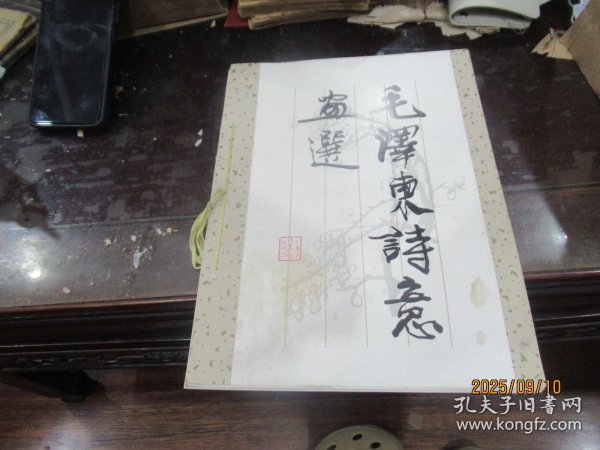 毛澤東詩意
画選
2025/09/10
孔夫子旧书网
www.kongfz.com